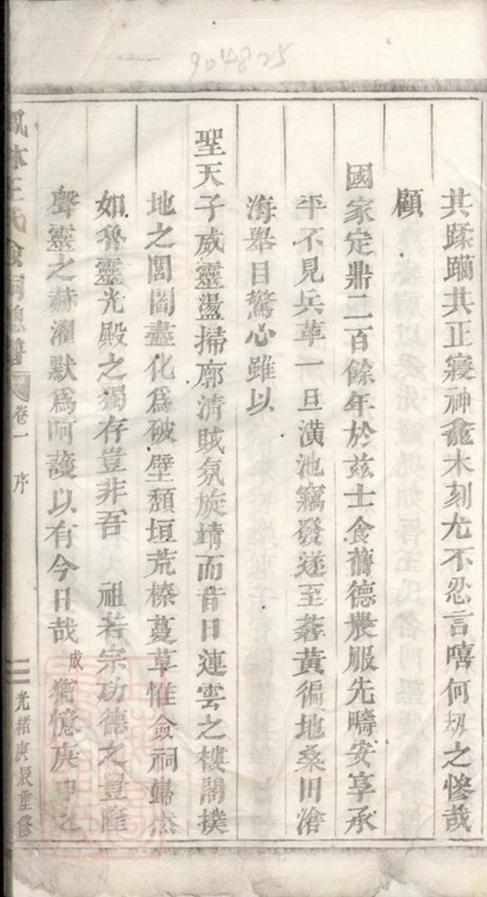 904825
其蹂躪其正寢神龕木刻尤不忍言嘻何刼之慘哉
顧
國家定鼎二百餘年於茲士食舊德農服先疇安享承
平不見兵革一旦潢池竊發遂至蒼黃徧地桑田滄
海舉目驚心雖以
聖天子威靈盪掃廓清賊氛旋靖而昔日連雲之樓閣撲
地之閭閻盡化爲破壁頹垣荒榛蔓草惟僉祠巋然
如魯靈光殿之獨存豈非吾 祖若宗功德之豐隆
聲靈之赫濯默爲呵護以有今日哉成猶憶庚申之
鳳林王氏僉祠總譜 卷一 序 光緒庚辰重修